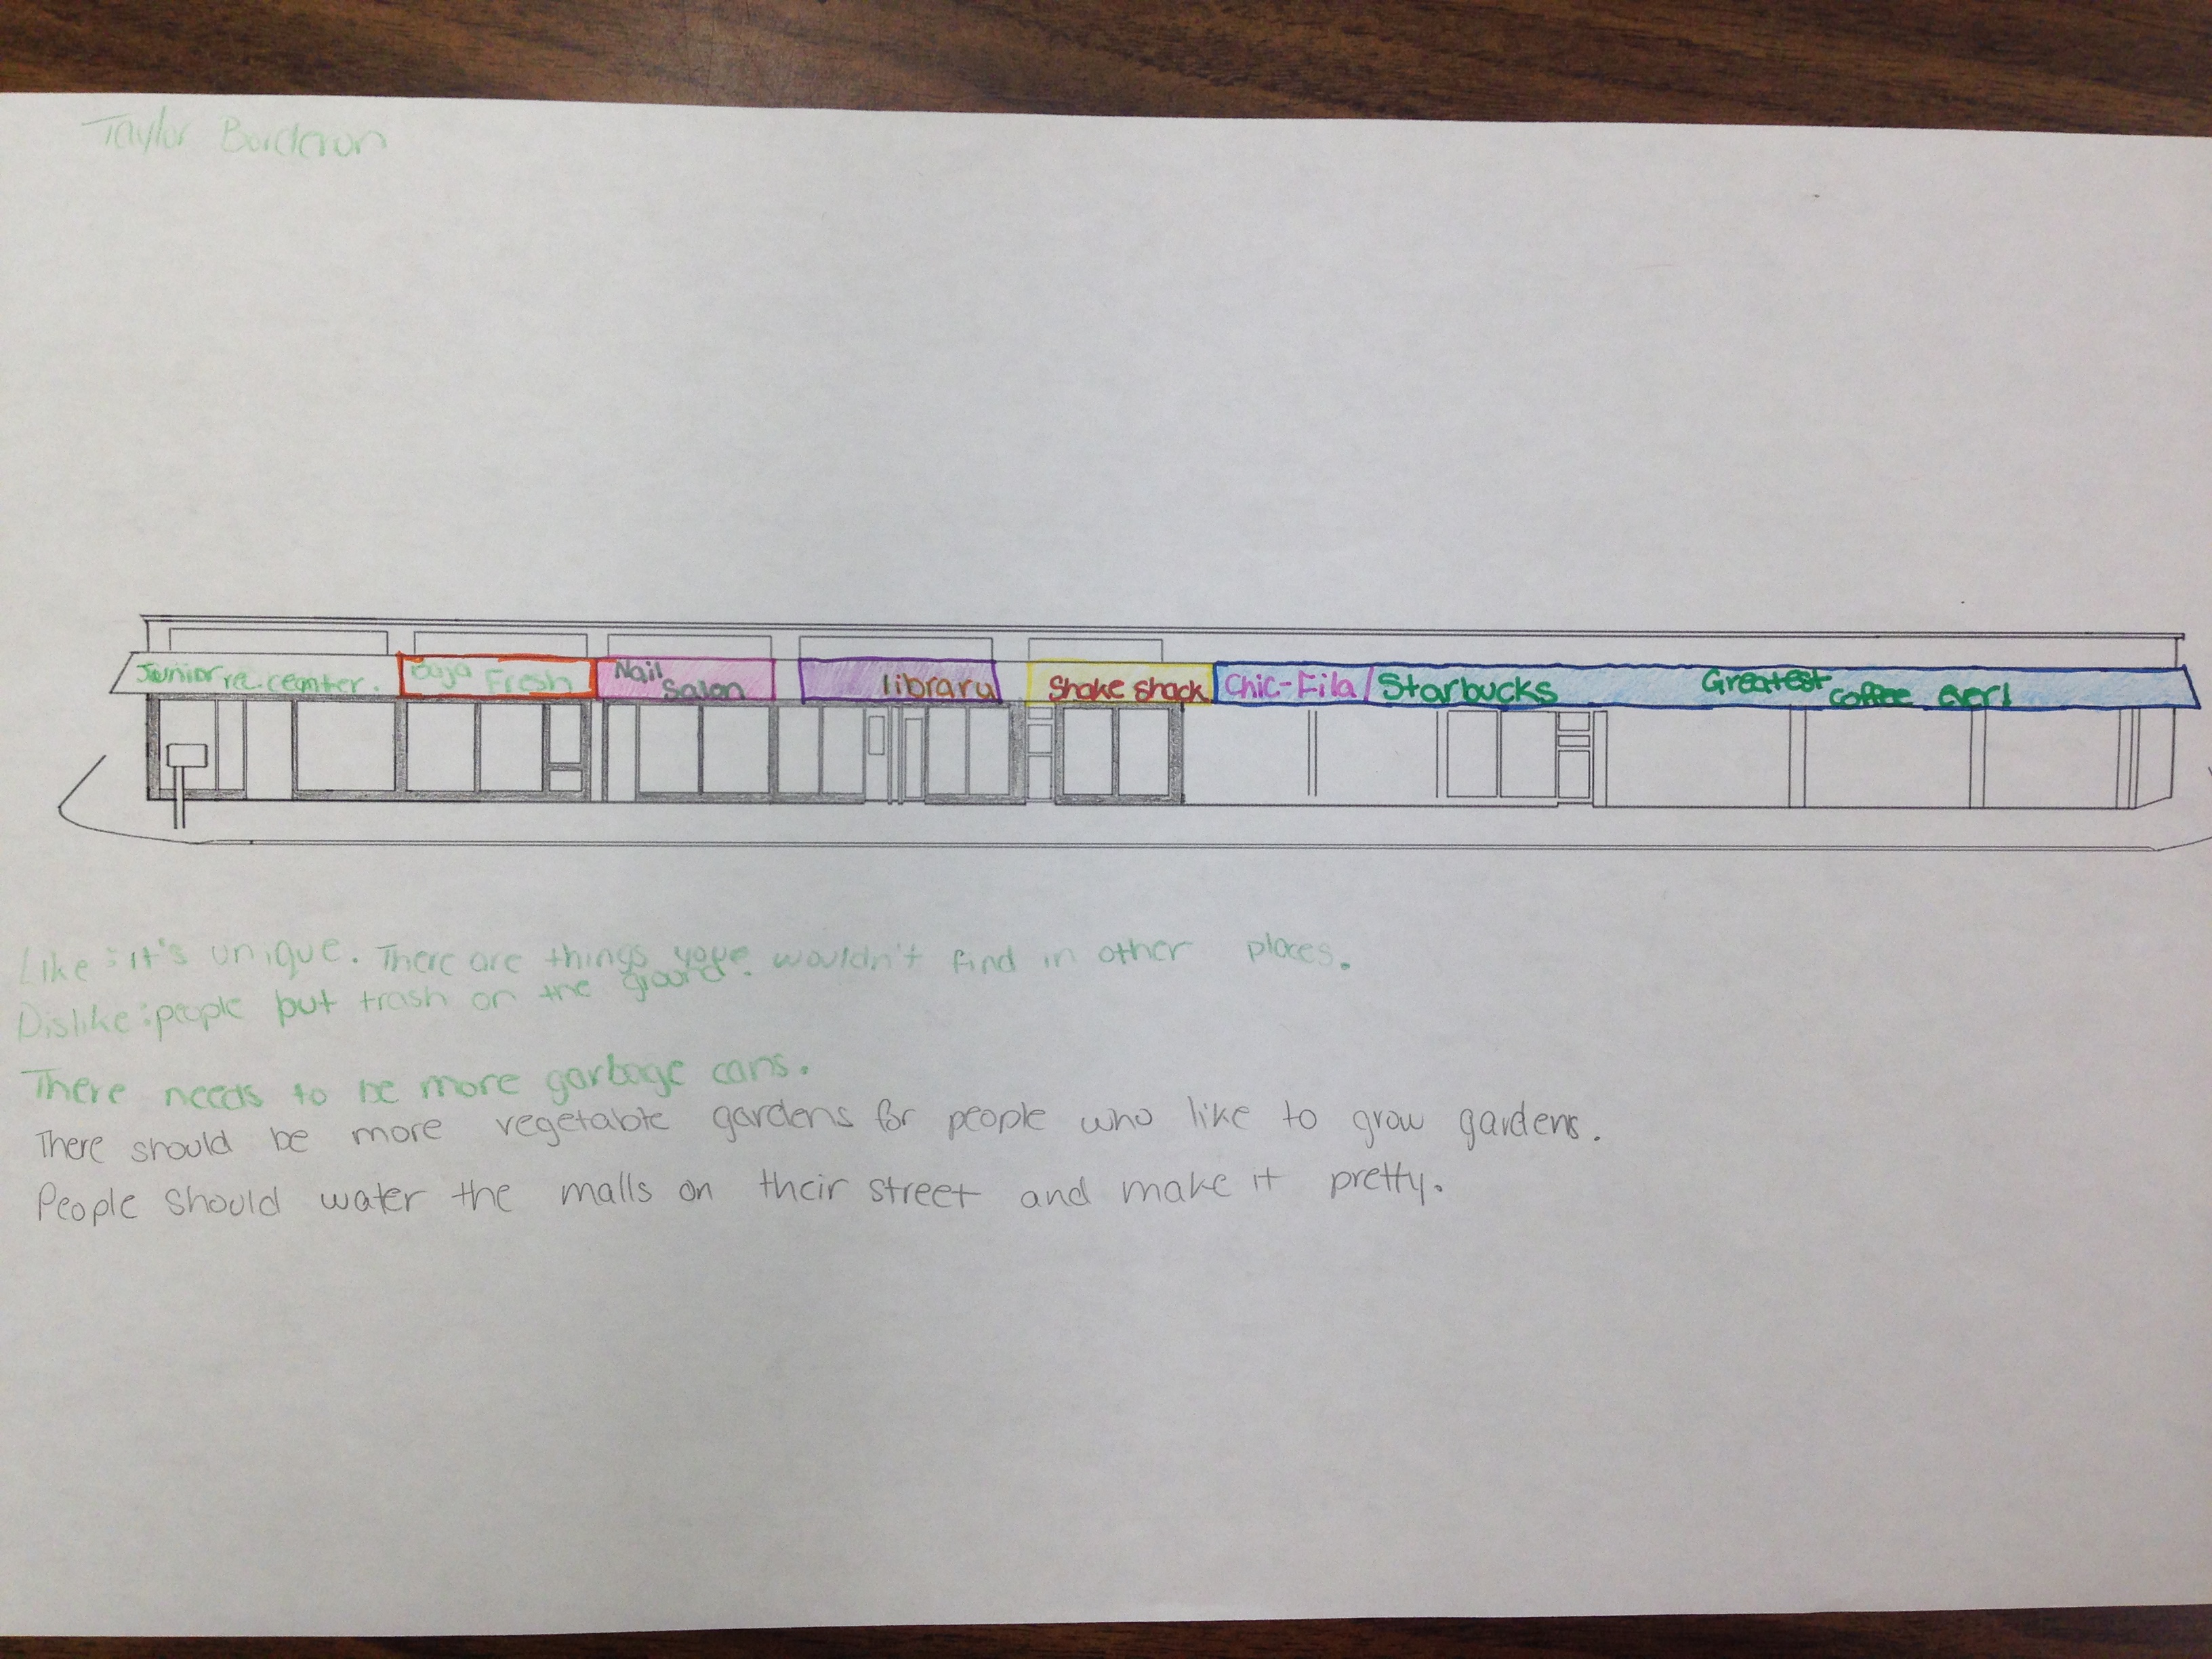 Taylor Borderon
Junior rec. ceanter.
Baja Fresh
Nail
Salon
library
Shake shack
Chic-Fila
Starbucks
Greatest
coffee ever!
Like: it's unique. There are things you wouldn't find in other places.
Dislike: people but trash on the ground.
There needs to be more garbage cans.
There should be more vegetable gardens for people who like to grow gardens.
People should water the malls on their street and make it pretty.